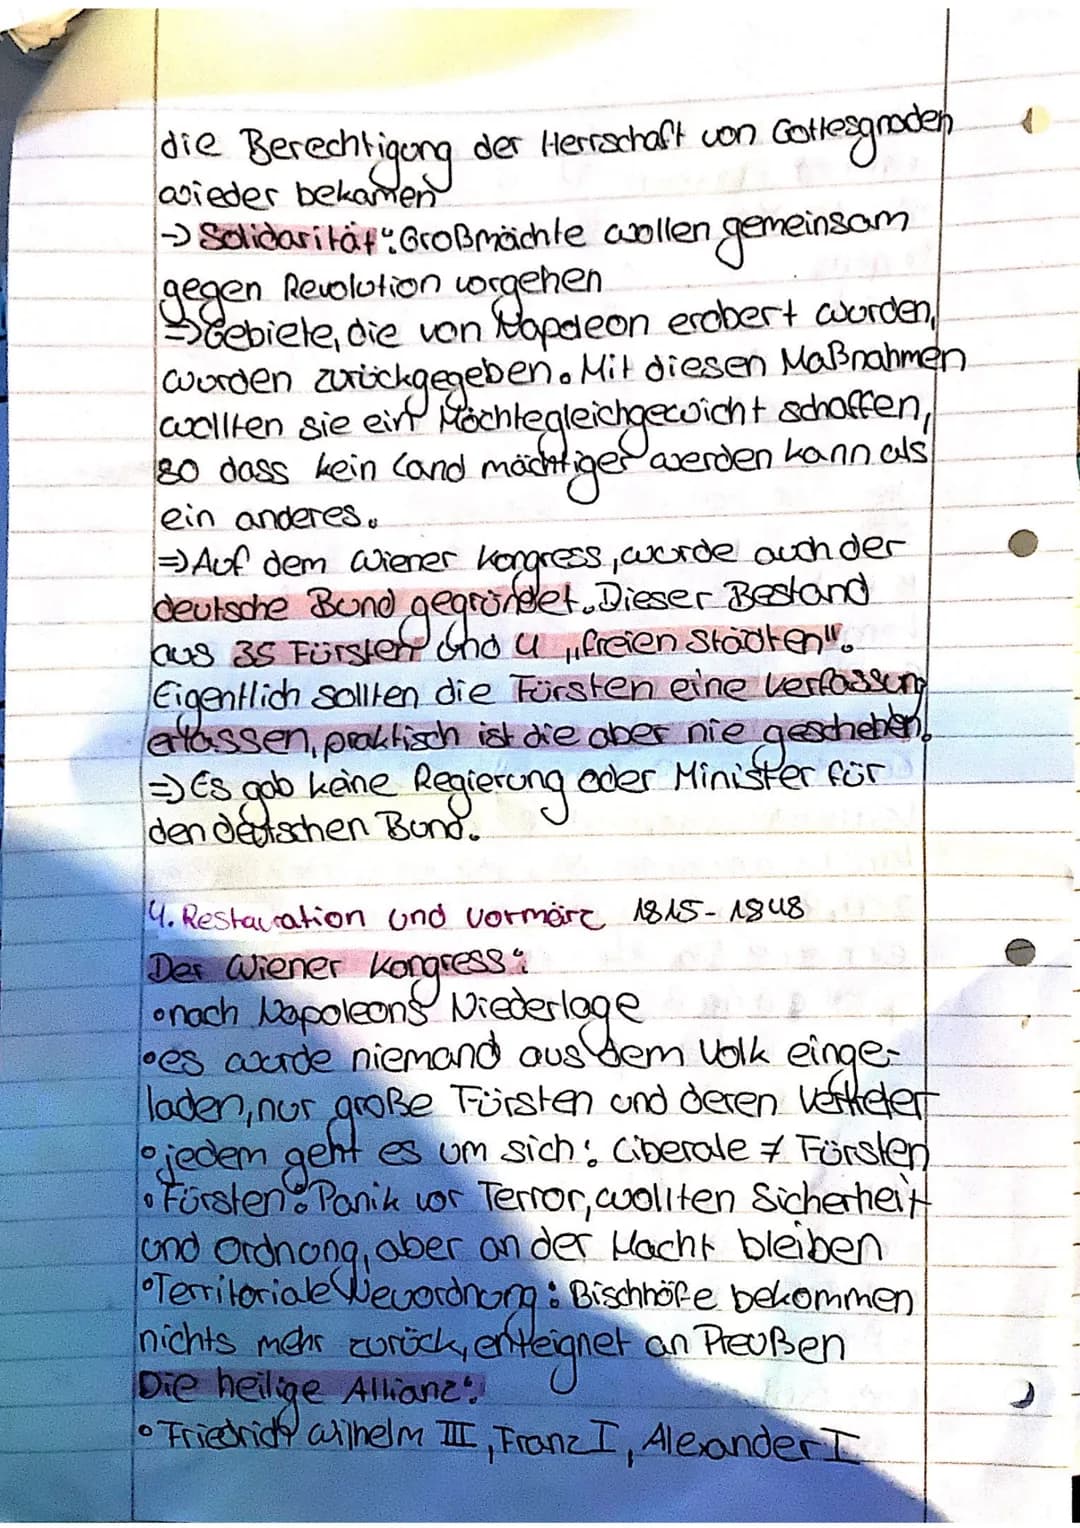 die Berechtigung der Herrschaft von Gottesgnaden
wieder bekamen
→ Solidarität: Großmächte wollen gemeinsam
gegen Revolution vorgehen
⇒ Gebiete, die von Napoleon erobert wurden,
wurden zurückgegeben. Mit diesen Maßnahmen
wollten sie ein Mächtegleichgewicht schaffen,
so dass kein Land mächtiger werden kann als
ein anderes.
⇒ Auf dem Wiener Kongress, wurde auch der
deutsche Bund gegründet. Dieser Bestand
aus 35 Fürsten und 4 „freien Städten".
Eigentlich sollten die Fürsten eine Verfassung
erlassen, praktisch ist die aber nie geschehen.
⇒ Es gab keine Regierung oder Minister für
den deutschen Bund.
4. Restauration und Vormärz 1815-1848
Der Wiener Kongress:
• nach Napoleons Niederlage
• es wurde niemand aus dem Volk einge-
laden, nur große Fürsten und deren Vertreter
• jedem geht es um sich: Liberale ≠ Fürsten
• Fürsten: Panik vor Terror, wollten Sicherheit
und Ordnung, aber an der Macht bleiben
• Territoriale Neuordnung: Bischhöfe bekommen
nichts mehr zurück, enteignet an Preußen
Die heilige Allianz:
• Friedrich Wilhelm III, Franz I, Alexander I